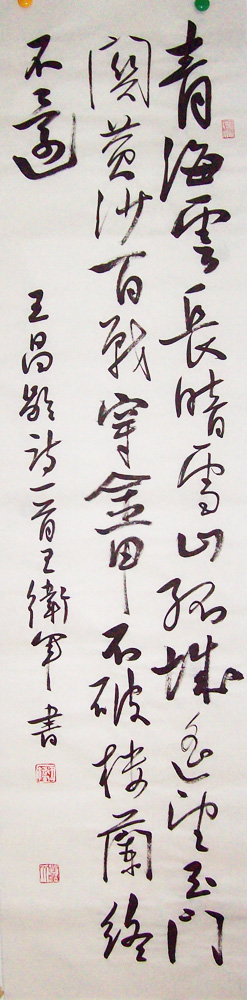 青海雲長暗雪山孤城遙望玉門
關黃沙百戰穿金甲不破樓蘭終
不還
王昌齡詩一首王衛軍書